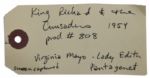 King Richard & the
Crusaders 1954
prod # 808
Virginia Mayo - Lady Edith
Plantagenet